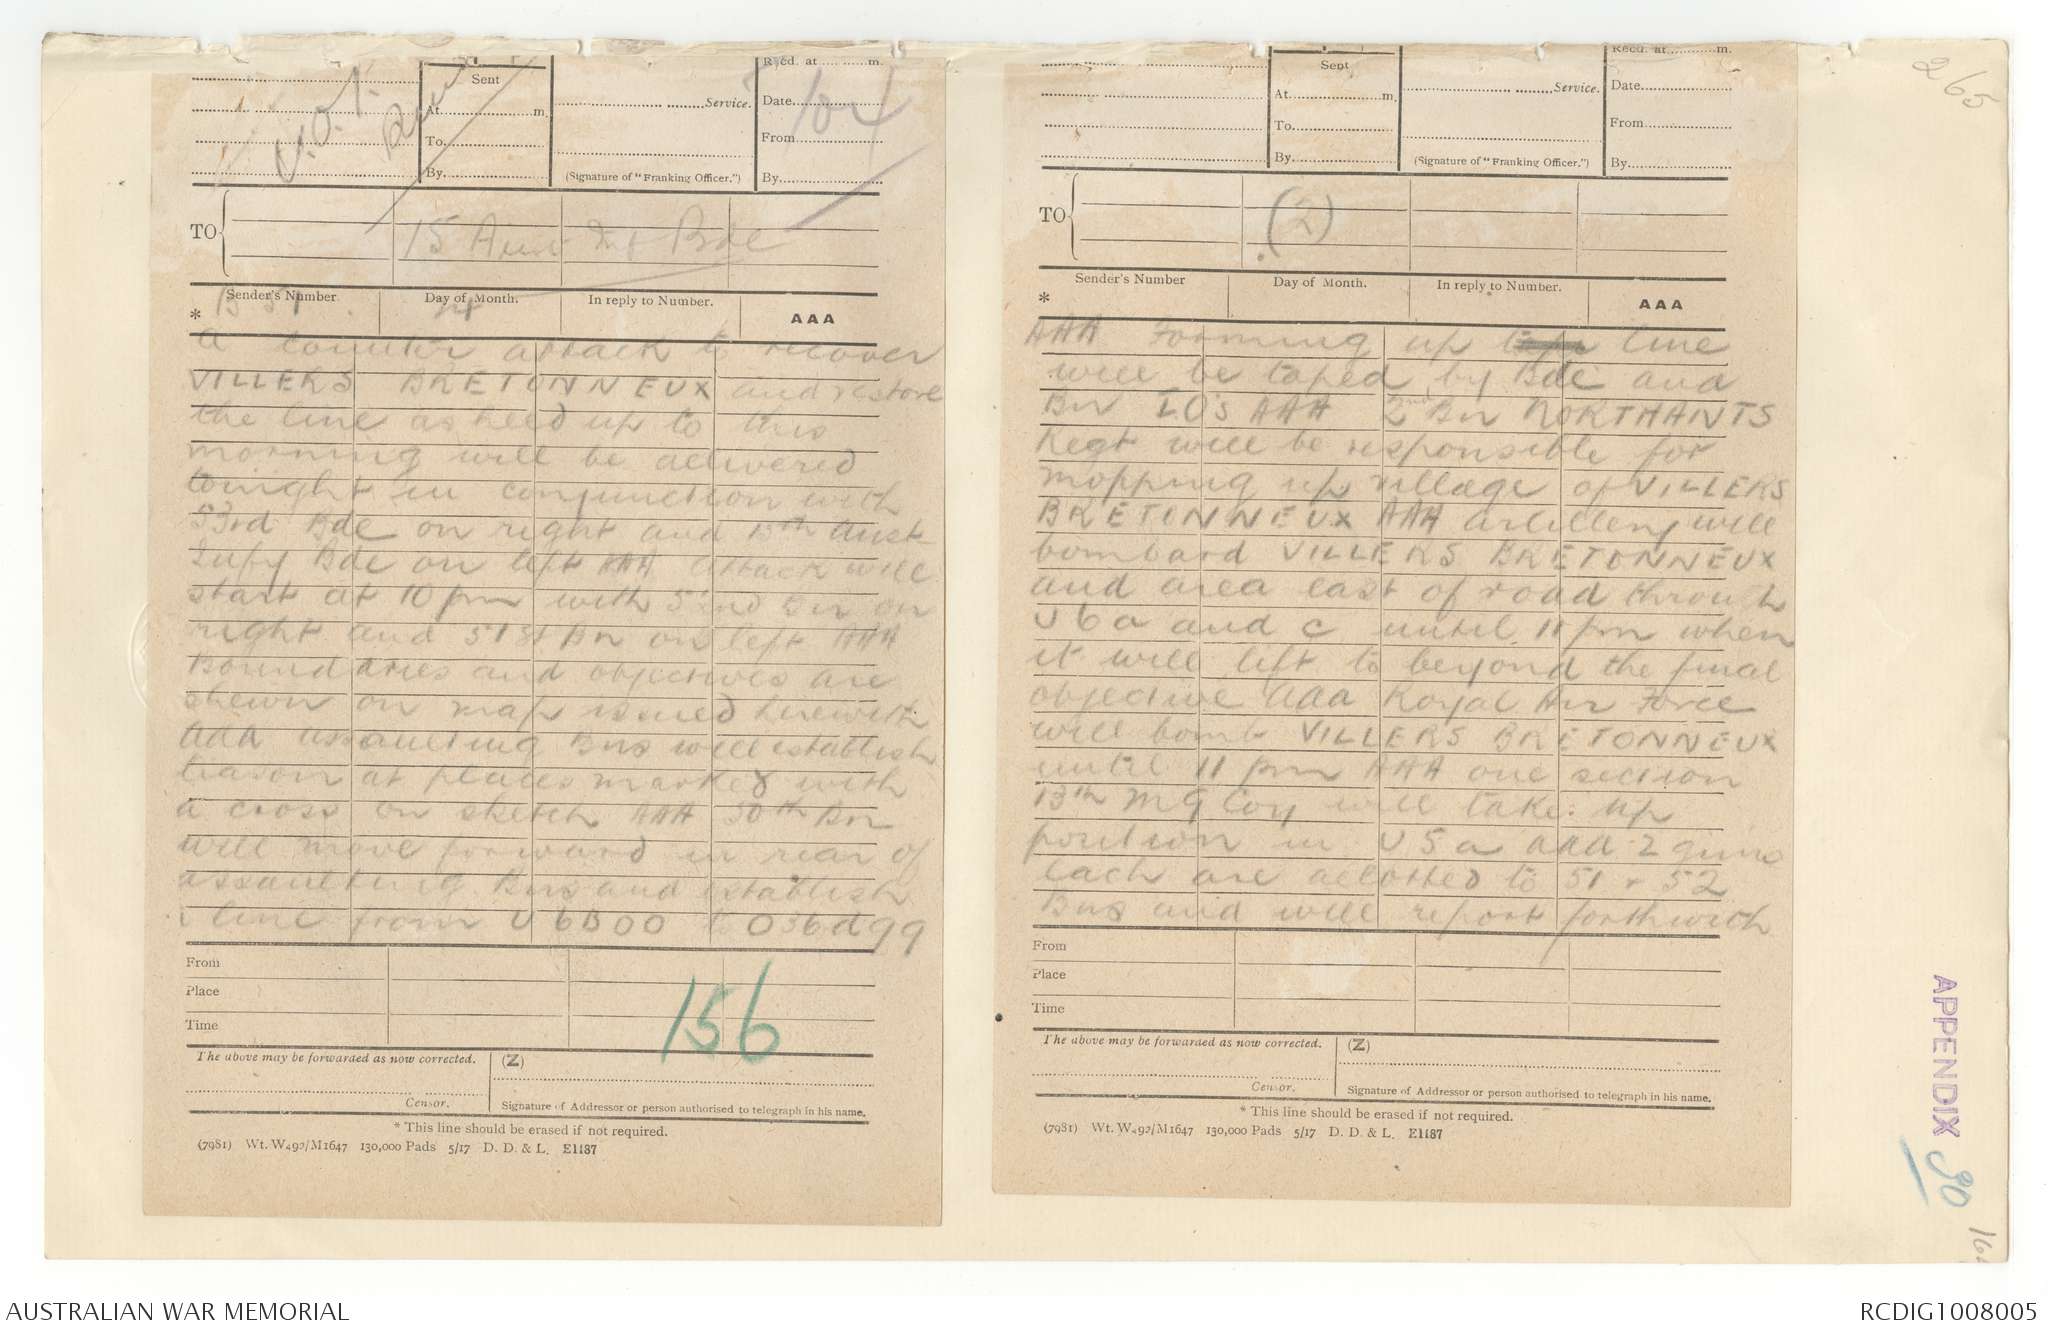 Sent
At ... m.
To
By
Service.
(Signature of "Franking Officer.")
Recd. at ... m.
Date
From
By
104
TO
15 Aust Inf Bde
Sender's Number.
Day of Month.
In reply to Number.
AAA
*
24
A counter attack to recover
VILLERS BRETONNEUX and restore
the line as held up to this
morning will be delivered
tonight in conjunction with
53rd Bde on right and 15th Aust
Infy Bde on left AAA Attack will
start at 10 pm with 52nd Bn on
right and 51st Bn on left AAA
Boundaries and objectives are
shewn on map issued herewith
AAA assaulting Bns will establish
liason at places marked with
a cross on sketch AAA 50th Bn
will move forward in rear of
assaulting Bns and establish
a line from U6B00 to O36d99
From
Place
Time
156
The above may be forwarded as now corrected.
(Z)
Censor.
Signature of Addressor or person authorised to telegraph in his name.
* This line should be erased if not required.
(7981) Wt. W492/M1647 130,000 Pads 5/17 D. D. & L. E1187
Sent
At ... m.
To
By
Service.
(Signature of "Franking Officer.")
Recd. at ... m.
Date
From
By
265
TO
(2)
Sender's Number
Day of Month.
In reply to Number.
AAA
*
AAA Forming up line
will be taped by Bde and
Bn IO's AAA 2nd Bn NORTHANTS
Regt will be responsible for
mopping up village of VILLERS
BRETONNEUX AAA artillery will
bombard VILLERS BRETONNEUX
and area east of road through
U6a and c until 11 pm when
it will lift to beyond the final
objective AAA Royal Air Force
will bomb VILLERS BRETONNEUX
until 11 pm AAA one section
13th MG Coy will take up
position in U5a AAA 2 guns
each are allotted to 51 & 52
Bns and will report forthwith
From
Place
Time
The above may be forwarded as now corrected.
(Z)
Censor.
Signature of Addressor or person authorised to telegraph in his name.
* This line should be erased if not required.
(7981) Wt. W492/M1647 130,000 Pads 5/17 D. D. & L. E1187
APPENDIX 90
AUSTRALIAN WAR MEMORIAL
RCDIG1008005